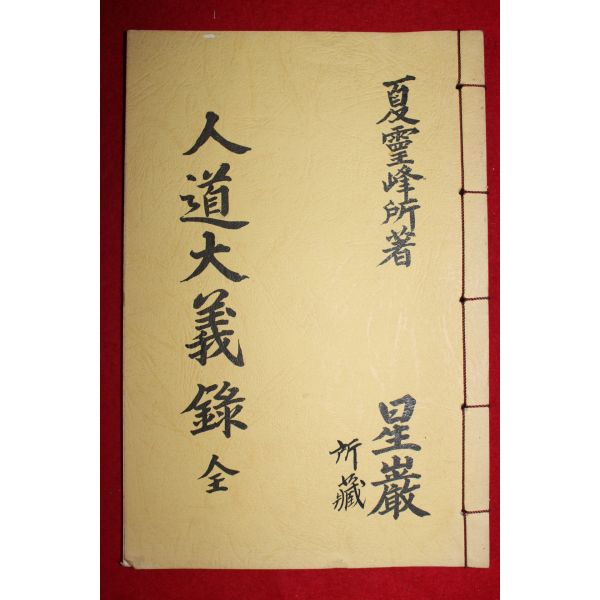 夏靈峰所著
星巖
所藏
人道大義錄 全